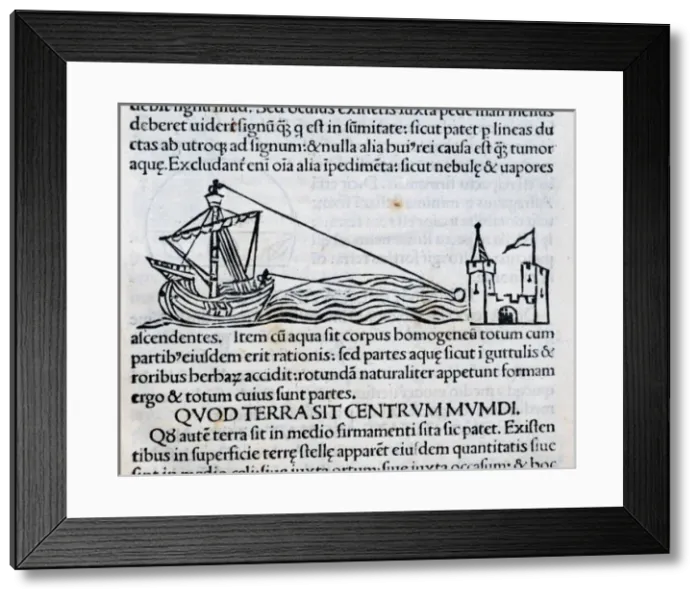 debit signũ illud. Sed oculus existẽtis iuxta pedẽ mali melius
deberet uidere signũ q̃ȝ q est in sũmitate: sicut patet p lineas du
ctas ab utroqȝ ad signum: & nulla alia huiꝰ rei causa est q̃ȝ tumor
aquę. Excludant̃ eni oĩa alia ĩpedimẽta: sicut nebulę & uapores
ascendentes. Item cũ aqua sit corpus homogeneũ totum cum
partibꝰ eiusdem erit rationis: sed partes aquę sicut i guttulis &
roribus herbaꝝ accidit: rotundã naturaliter appetunt formam
ergo & totum cuius sunt partes.
QVOD TERRA SIT CENTRVM MVMDI.
Qđ autẽ terra sit in medio firmamenti sita sic patet. Existen
tibus in superficie terrę stellę apparẽt eiusdem quantitatis siue
sint in medio celi: siue iuxta ortum: siue iuxta occasum: & hoc